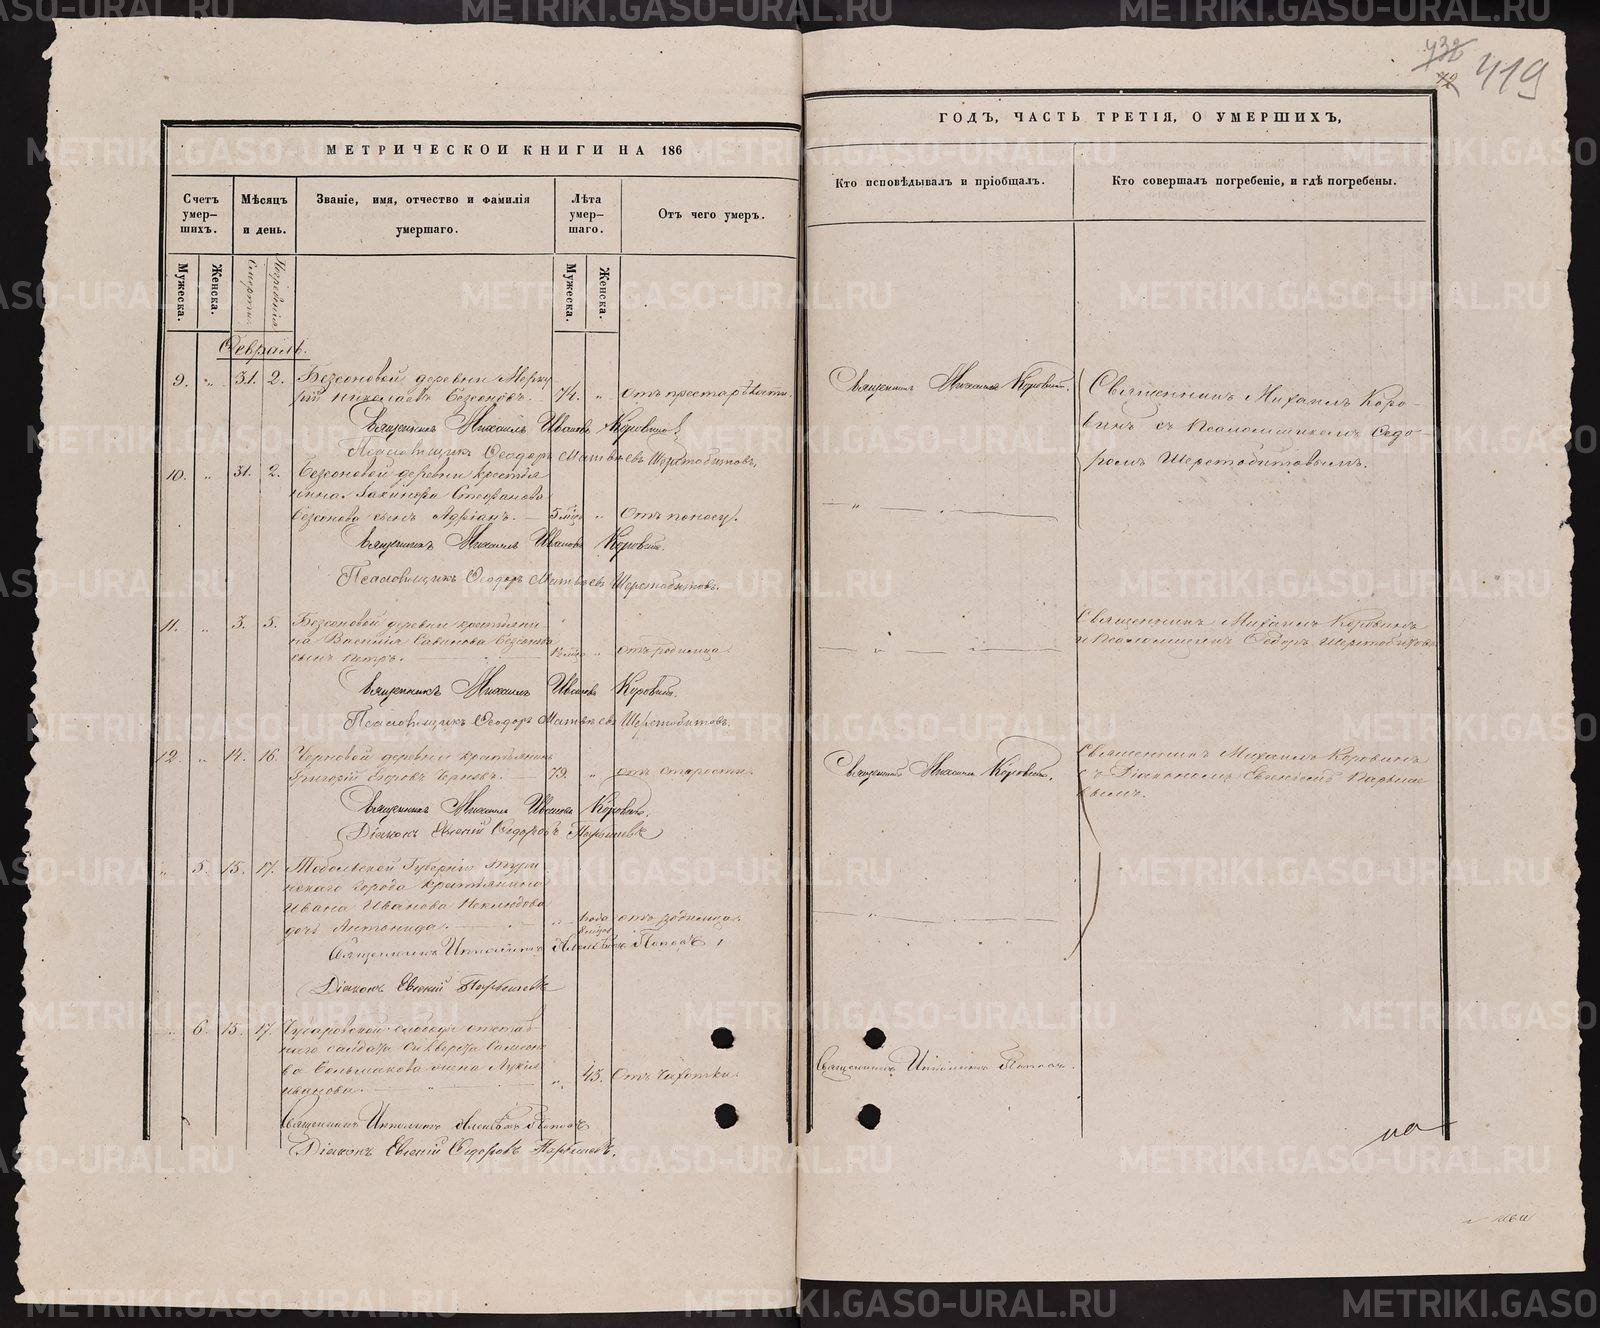 438
72
419
МЕТРИЧЕСКОЙ КНИГИ НА 186
ГОДЪ, ЧАСТЬ ТРЕТІЯ, О УМЕРШИХЪ,
Счетъ умер-шихъ.
Мѣсяцъ и день.
Званіе, имя, отчество и фамилія умершаго.
Лѣта умер-шаго.
Отъ чего умеръ.
Кто исповѣдывалъ и пріобщалъ.
Кто совершалъ погребеніе, и гдѣ погребены.
Мужеска.
Женска.
Смерти.
Погребенія
Мужеска.
Женска.
Февраль.
9. " 31. 2. Безсоновой деревни Мерку
рій Николаевъ Безсоновъ. 74. " Отъ престарѣлости.
Священникъ Михаилъ Коровинъ.
Священникъ Михаилъ Коро-
винъ съ Псаломщикомъ Ѳедо-
ромъ Шерстобитовымъ.
Священникъ Михаилъ Ивановъ Коровинъ.
Псаломщикъ Ѳеодоръ Матвѣевъ Шерстобитовъ.
10. " 31. 2. Безсоновой деревни крестья
нина Стефанова
Безсонова сынъ Адріанъ. 5 мѣс. " Отъ поносу.
Священникъ Михаилъ Ивановъ Коровинъ.
Псаломщикъ Ѳеодоръ Матвѣевъ Шерстобитовъ.
11. " 3. 5. Безсоновой деревни крестьяни
на Василія Савинова Безсонова
сынъ Петръ. 12 " отъ родимца
Священникъ Михаилъ Коровинъ
и Псаломщикъ Ѳедоръ Шерстобитовъ
Священникъ Михаилъ Ивановъ Коровинъ.
Псаломщикъ Ѳеодоръ Матвѣевъ Шерстобитовъ.
12. " 14. 16. Черновой деревни крестьянинъ
Григорій Егоровъ Черновъ. 79. " отъ старости
Священникъ Михаилъ Коровинъ.
Священникъ Михаилъ Коровинъ
съ Діакономъ Евгеніемъ
Священникъ Михаилъ Ивановъ Коровинъ.
Діаконъ Евгеній Ѳедоровъ
" 5. 15. 17. Тобольской Губерніи Турин
скаго города крестьянина
Ивана Иванова Неклюдова
дочь Антонида. " 1 года отъ родимца.
Священникъ Ипполитъ Алексѣевъ Поповъ
Діаконъ Евгеній
" 6. 15. 17. слободы отстав
наго солдата
жена Лукія
Иванова. " 45. Отъ чахотки.
Священникъ Ипполитъ Поповъ.
Священникъ Ипполитъ Алексѣевъ Поповъ
Діаконъ Евгеній Ѳедоровъ
на
METRIKI.GASO-URAL.RU